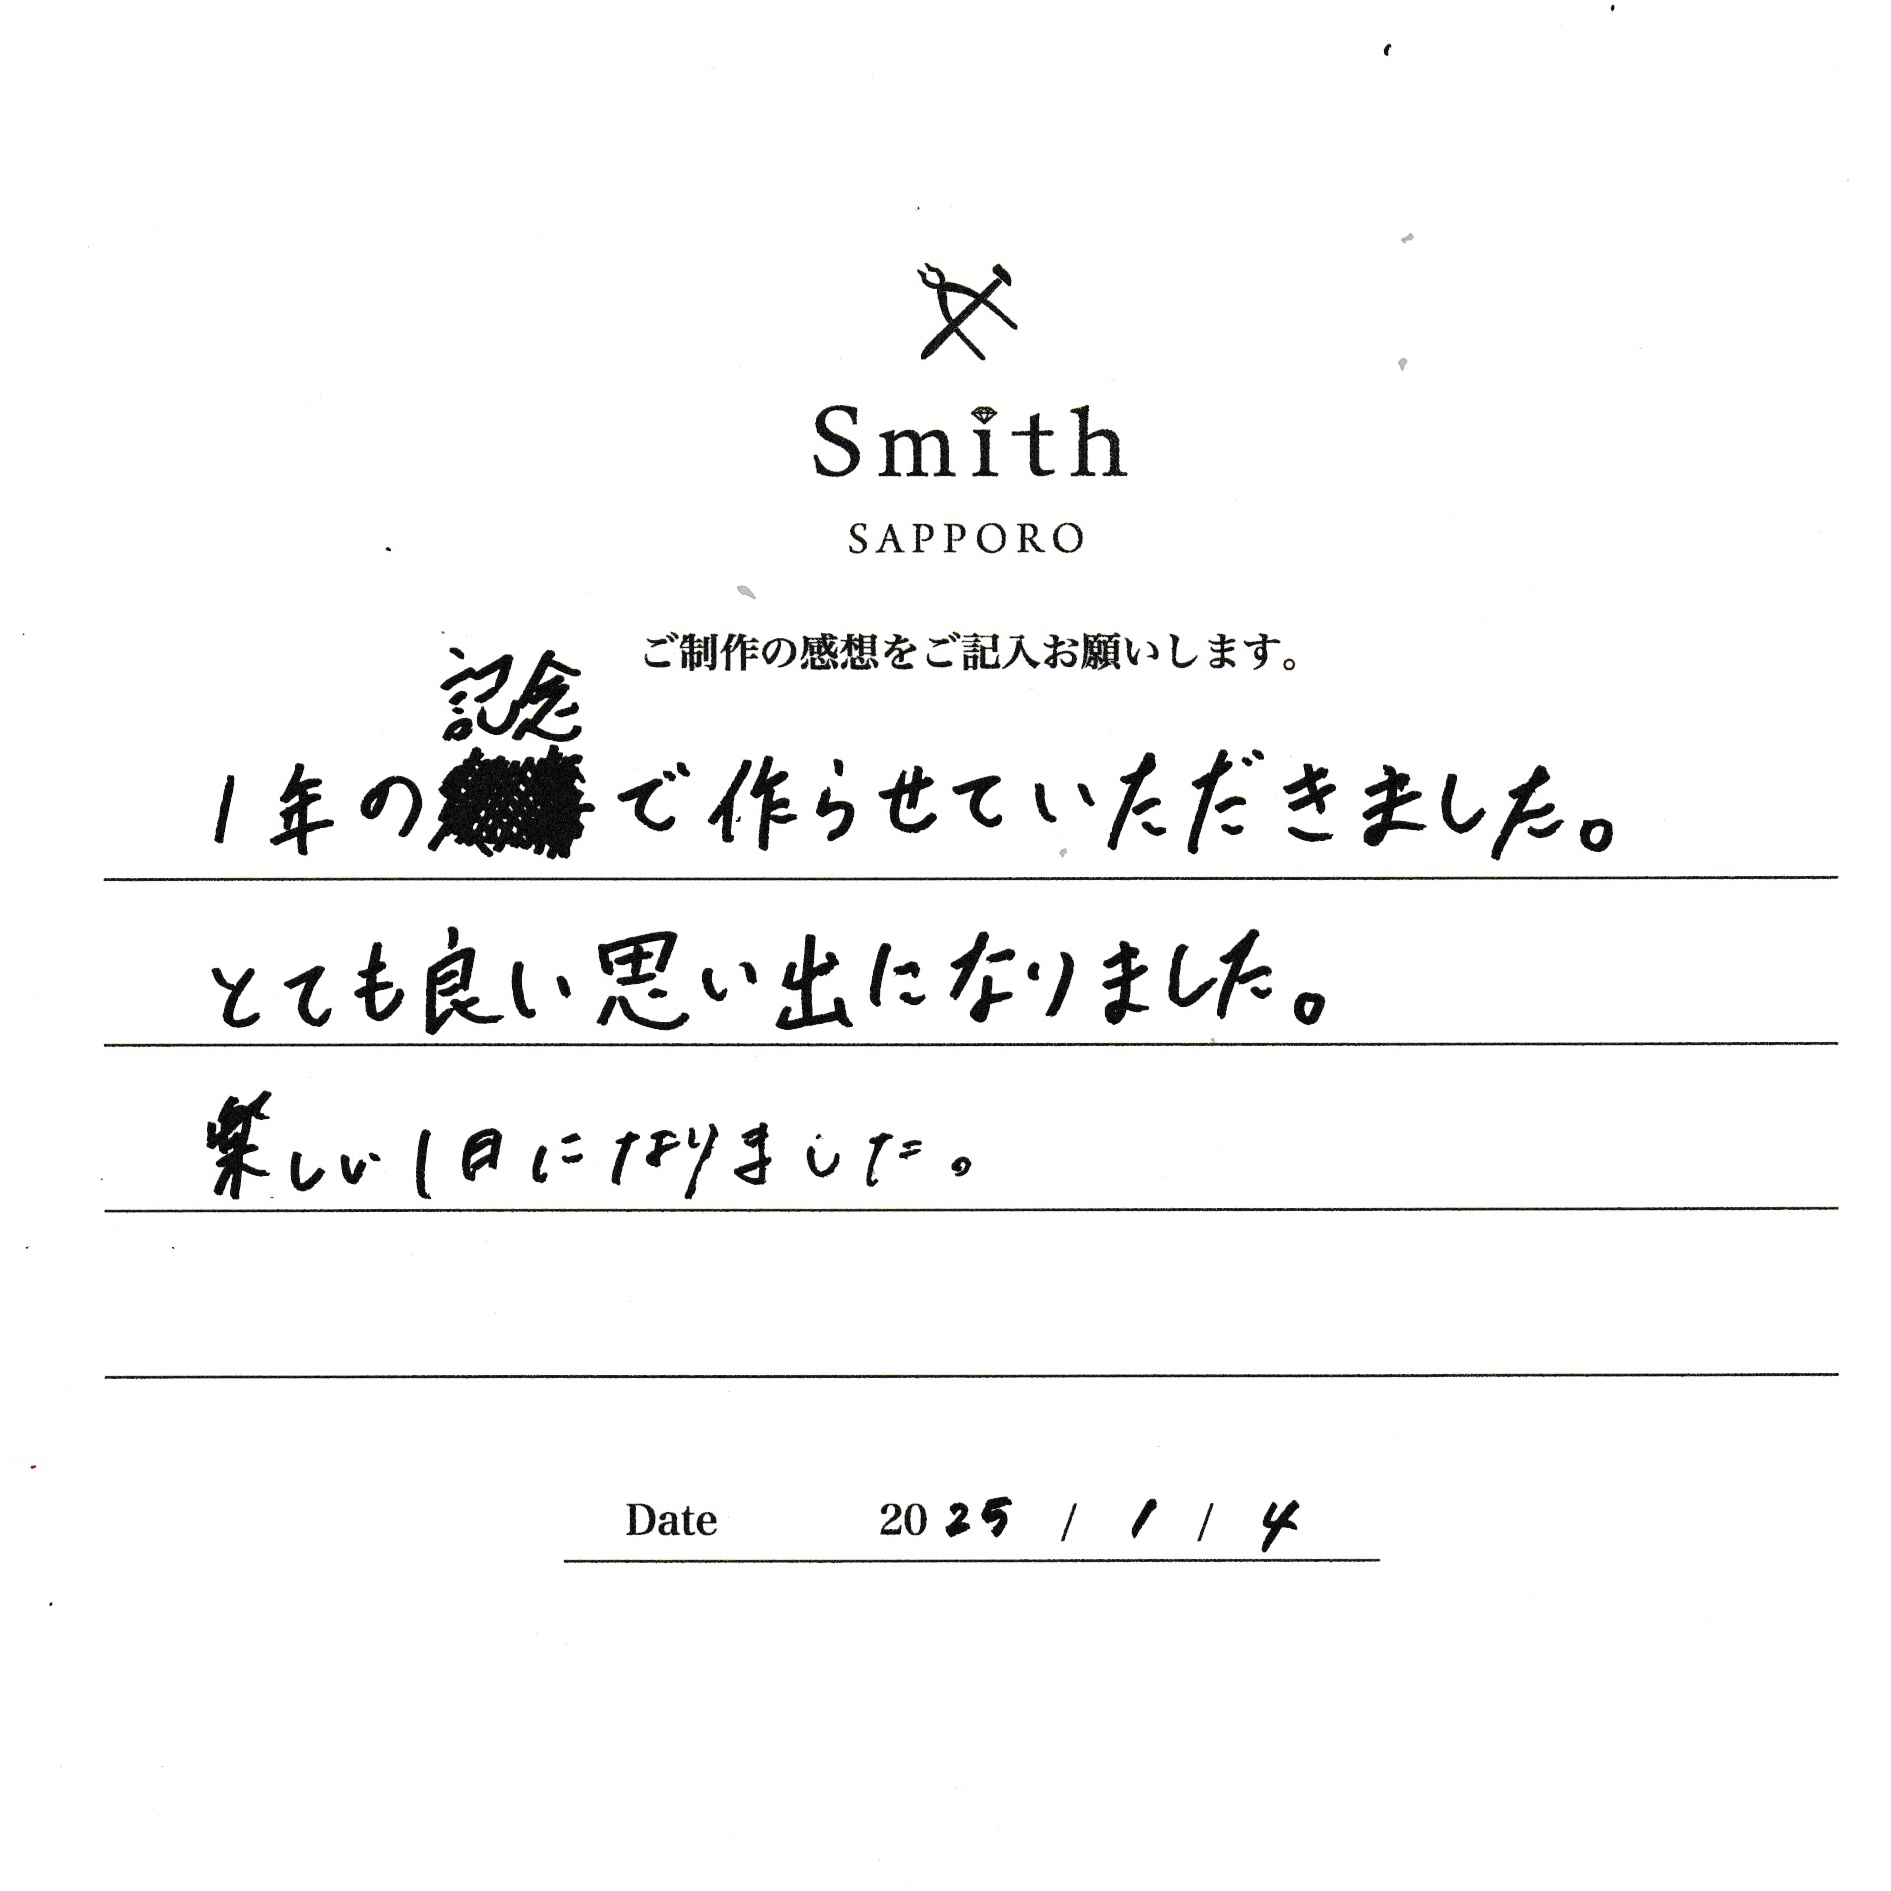 Smith
SAPPORO
ご制作の感想をご記入お願いします。
記念
1年ので作らせていただきました。
とても良い思い出になりました。
楽しい1日になりました。
Date 2025 / 1 / 4